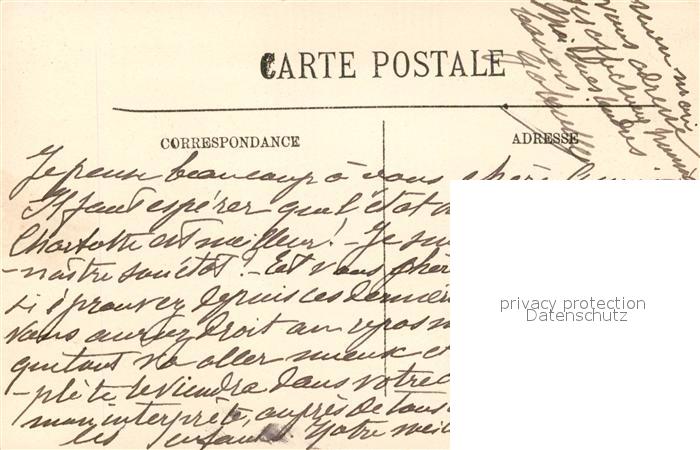 CARTE POSTALE
CORRESPONDANCE
ADRESSE
mon mari
vous adresse
ses affectueux
Je pense beaucoup à vous chère
Il faut espérer que l'état
Charlotte est meilleur! - Je
-naître son état! - Et vous chère
si éprouvez depuis ces dernière
vous auriez droit au repos
que tout va aller mieux et
-plète reviendra dans votre
mon interprète, auprès de tous
les enfants. Votre
privacy protection
Datenschutz